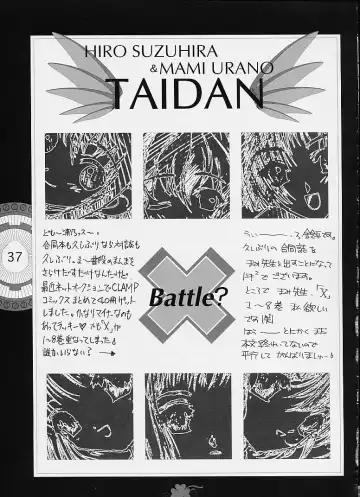 HIRO SUZUHIRA
& MAMI URANO
TAIDAN
37
Battle?
とも〜浦乃っス〜。
合同本も久しぶりなら対談も
久しぶり。ま〜普段のまんまを
さらけだすだけなんだけど。
最近ネットオークションでCLAMP
コミックスまとめて40冊ゲット
しました。かなりマイナーなのも
あってラッキー♡ でも「X」が
1〜8巻重なってしまった。
誰かいらない?
うぃ〜 鈴平です。
久しぶりの合同誌を
まみ先生と出すことになって
ございます。
ところで まみ先生、「X」
1〜8巻 私が欲しい
です
は〜 とにかく まだ
本文終わってないので
平行して がんばりましょ〜